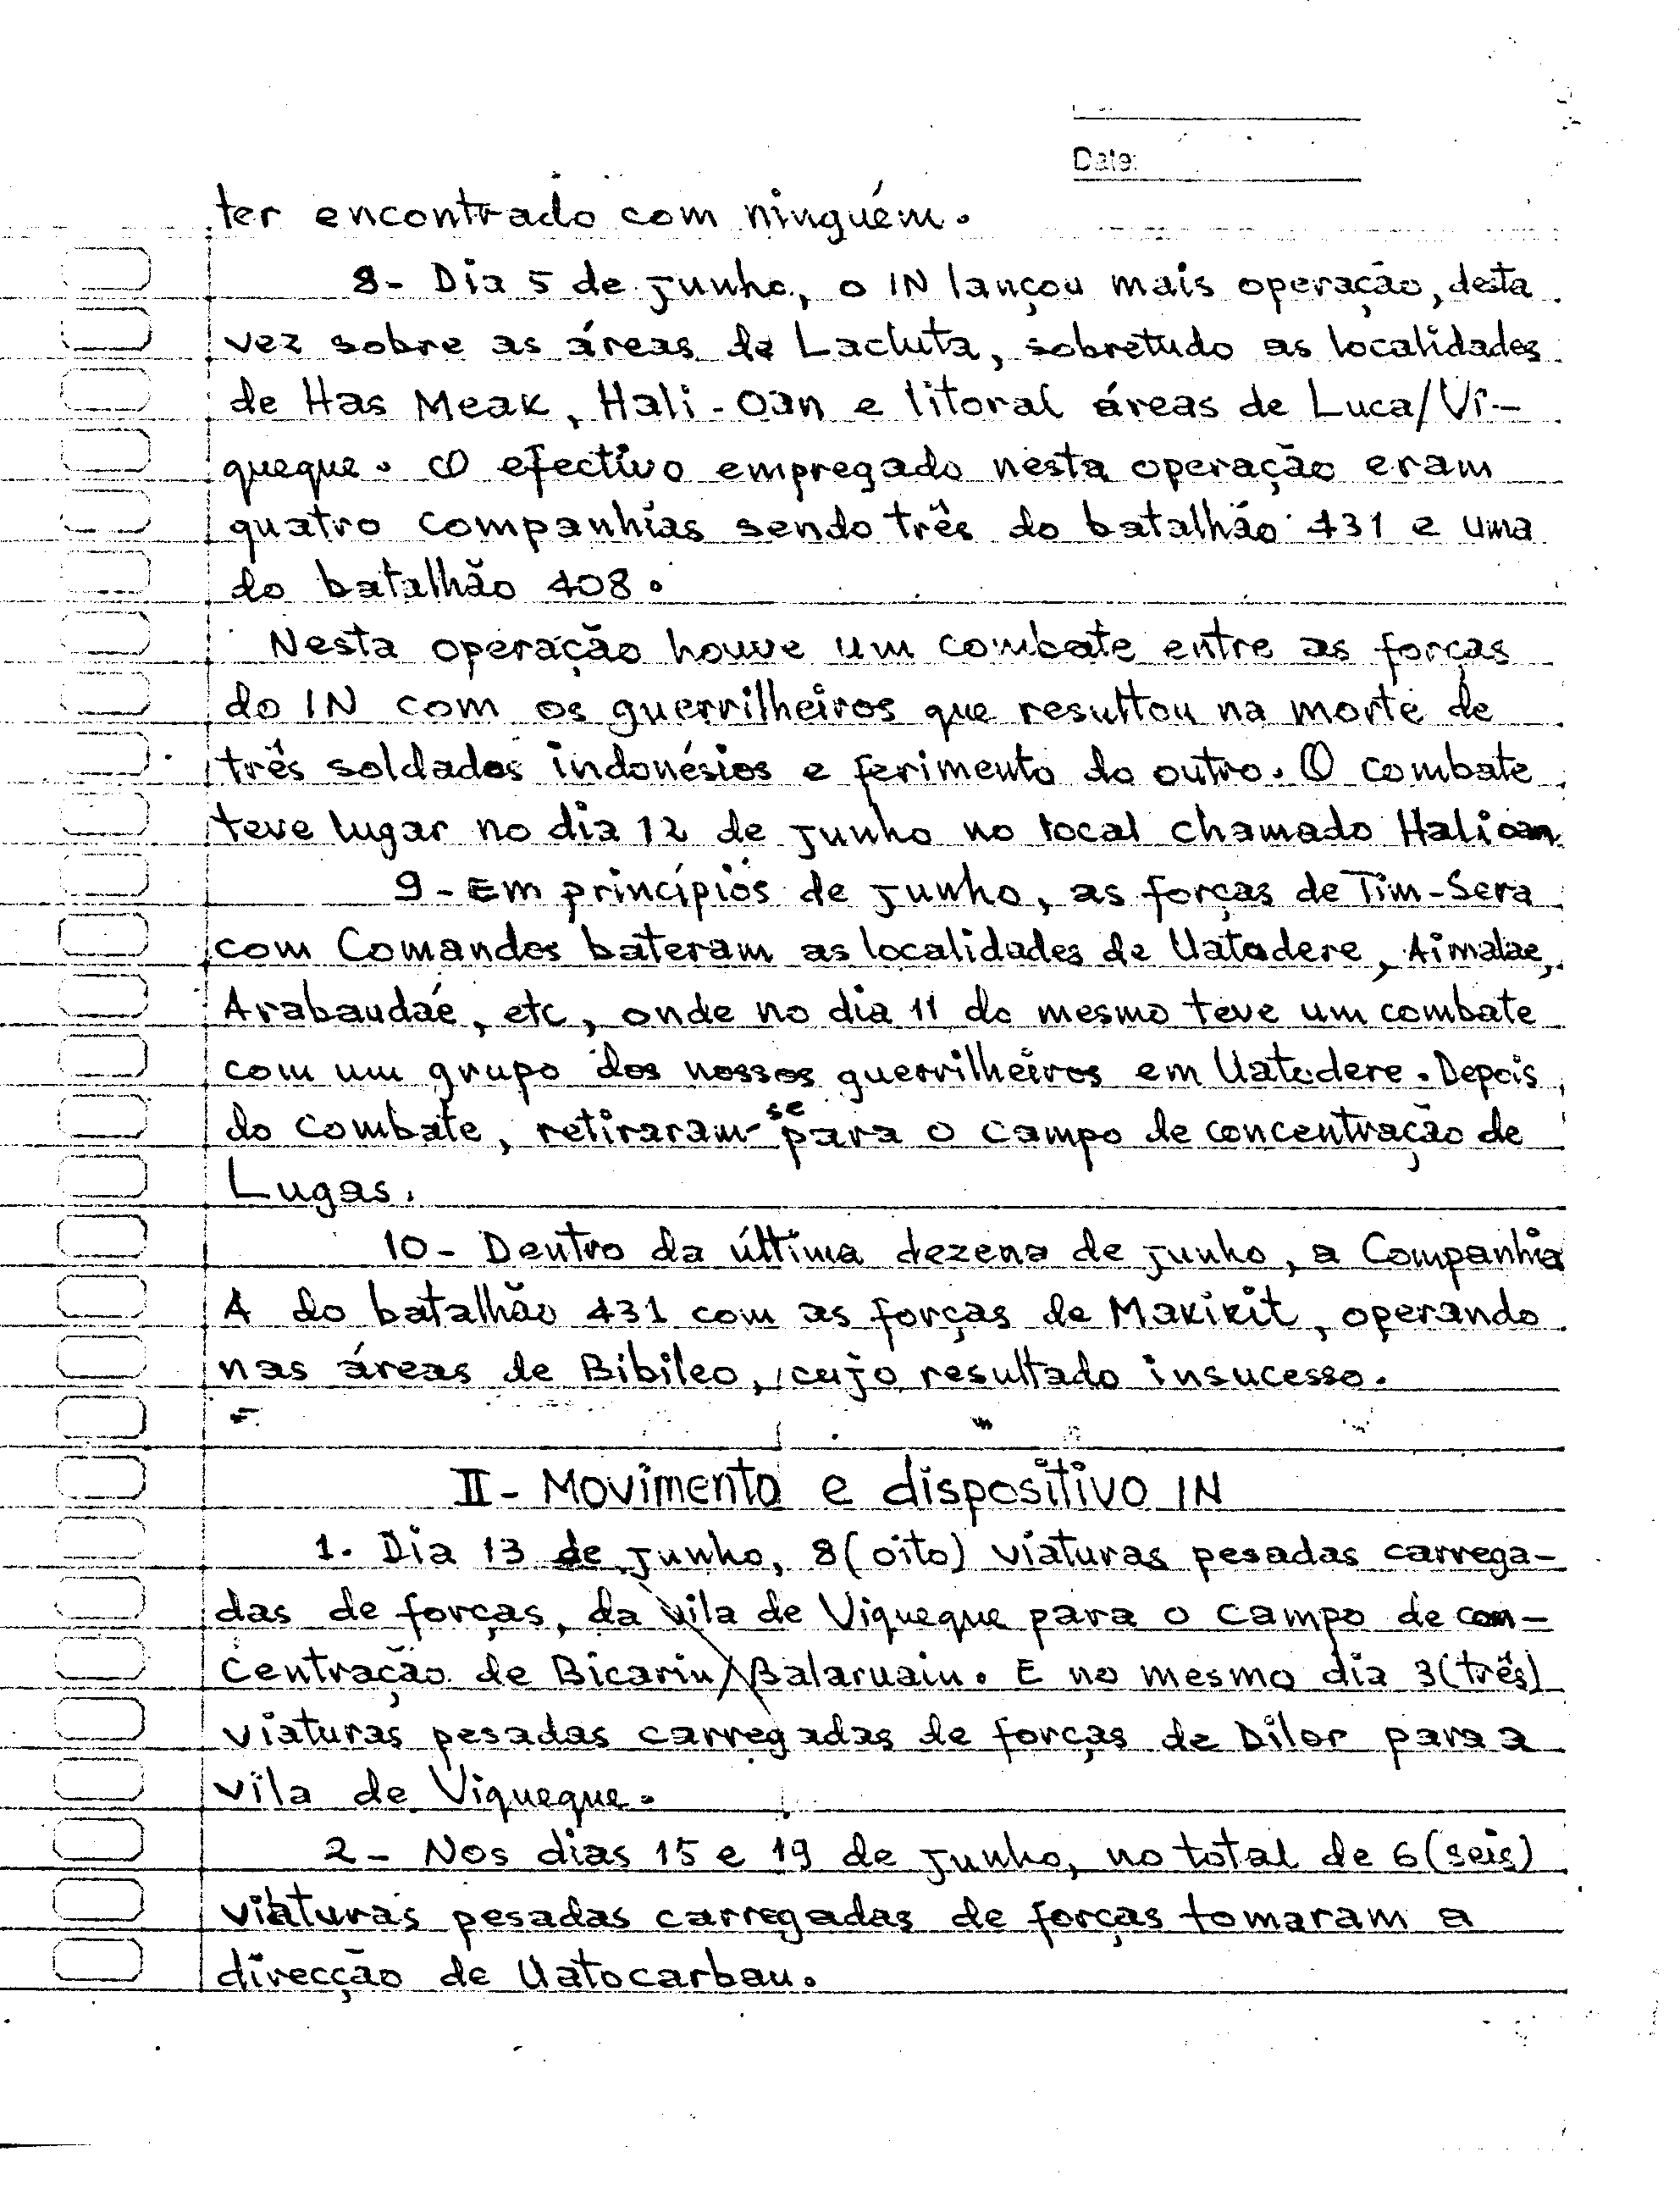 Date:
ter encontrado com ninguém.
8- Dia 5 de junho, o IN lançou mais operação, desta
vez sobre as áreas de Lacluta, sobretudo as localidades
de Has Meak, Hali-Oan e litoral áreas de Luca/Vi-
queque. O efectivo empregado nesta operação eram
quatro companhias sendo três do batalhão 431 e uma
do batalhão 408.
Nesta operação houve um combate entre as forças
do IN com os guerrilheiros que resultou na morte de
três soldados indonésios e ferimento do outro. O combate
teve lugar no dia 12 de junho no local chamado Halioan
9- Em princípios de junho, as forças de Tim-Sera
com Comandos bateram as localidades de Uatodere, Aimalae,
Arabaudáe, etc, onde no dia 11 do mesmo teve um combate
com um grupo dos nossos guerrilheiros em Uatodere. Depois
do combate, retiraram-se para o campo de concentração de
Lugas.
10- Dentro da última dezena de junho, a Companhia
A do batalhão 431 com as forças de Makikit, operando
nas áreas de Bibileo, cujo resultado insucesso.
II- Movimento e dispositivo IN
1. Dia 13 de junho, 8(oito) viaturas pesadas carrega-
das de forças, da vila de Viqueque para o campo de con-
centração de Bicarin/Balaruain. E no mesmo dia 3(três)
viaturas pesadas carregadas de forças de Dilor para a
vila de Viqueque.
2- Nos dias 15 e 19 de junho, no total de 6(seis)
viaturas pesadas carregadas de forças tomaram a
direcção de Uatocarbau.